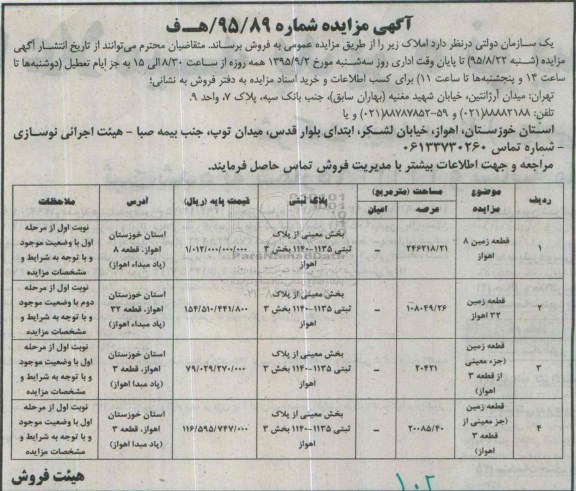 آگهی مزایده شماره ۹۵/۸۹/هـ‌ف
یک سازمان دولتی درنظر دارد املاک زیر را از طریق مزایده عمومی به فروش برساند. متقاضیان محترم می‌توانند از تاریخ انتشار آگهی
مزایده (شنبه ۹۵/۸/۲۲) تا پایان وقت اداری روز سه‌شنبه مورخ ۱۳۹۵/۹/۲ همه روزه از ساعت ۸/۳۰ الی ۱۵ به جز ایام تعطیل (دوشنبه‌ها تا
ساعت ۱۴ و پنجشنبه‌ها تا ساعت ۱۱) برای کسب اطلاعات و خرید اسناد مزایده به دفتر فروش به نشانی:
تهران: میدان آرژانتین، خیابان شهید مغنیه (بهاران سابق)، جنب بانک سپه، پلاک ۷، واحد ۹.
تلفن: ۸۸۸۸۲۱۸۸(۰۲۱) و ۵۹-۸۸۷۸۷۸۵۲(۰۲۱) و یا
استان خوزستان، اهواز، خیابان لشکر، ابتدای بلوار قدس، میدان توپ، جنب بیمه صبا - هیئت اجرائی نوسازی
- شماره تماس ۰۶۱۳۳۷۳۰۲۶۰
مراجعه و جهت اطلاعات بیشتر با مدیریت فروش تماس حاصل فرمایند.
ردیف موضوع مزایده مساحت (مترمربع) عرصه اعیان پلاک ثبتی قیمت پایه (ریال) آدرس ملاحظات
۱ قطعه زمین ۸ اهواز ۲۴۶۲۱۸/۲۱ – بخش معینی از پلاک ثبتی ۱۱۳۵-۱۱۴۰ بخش ۳ اهواز ۱/۰۱۲/۰۰۰/۰۰۰/۰۰۰ استان خوزستان اهواز، قطعه ۸ (پاد مبداء اهواز) نوبت اول از مرحله اول با وضعیت موجود و با توجه به شرایط و مشخصات مزایده
۲ قطعه زمین ۳۲ اهواز ۱۰۸۰۴۹/۲۶ – بخش معینی از پلاک ثبتی ۱۱۳۵-۱۱۴۰ بخش ۳ اهواز ۱۵۴/۵۱۰/۴۴۱/۸۰۰ استان خوزستان اهواز، قطعه ۳۲ (پاد مبداء اهواز) نوبت اول از مرحله دوم با وضعیت موجود و با توجه به شرایط و مشخصات مزایده
۳ قطعه زمین (جزء معینی از قطعه ۳ اهواز) ۲۰۴۲۱ – بخش معینی از پلاک ثبتی ۱۱۳۵-۱۱۴۰ بخش ۳ اهواز ۷۹/۰۲۹/۲۷۰/۰۰۰ استان خوزستان اهواز، قطعه ۳ (پاد مبدا اهواز) نوبت اول از مرحله اول با وضعیت موجود و با توجه به شرایط و مشخصات مزایده
۴ قطعه زمین (جزء معینی از قطعه ۳ اهواز) ۲۰۰۸۵/۴۰ – بخش معینی از پلاک ثبتی ۱۱۳۵-۱۱۴۰ بخش ۳ اهواز ۱۱۶/۵۹۵/۷۴۷/۰۰۰ استان خوزستان اهواز، قطعه ۳ (پاد مبدا اهواز) نوبت اول از مرحله اول با وضعیت موجود و با توجه به شرایط و مشخصات مزایده
هیئت فروش
۱۰۲